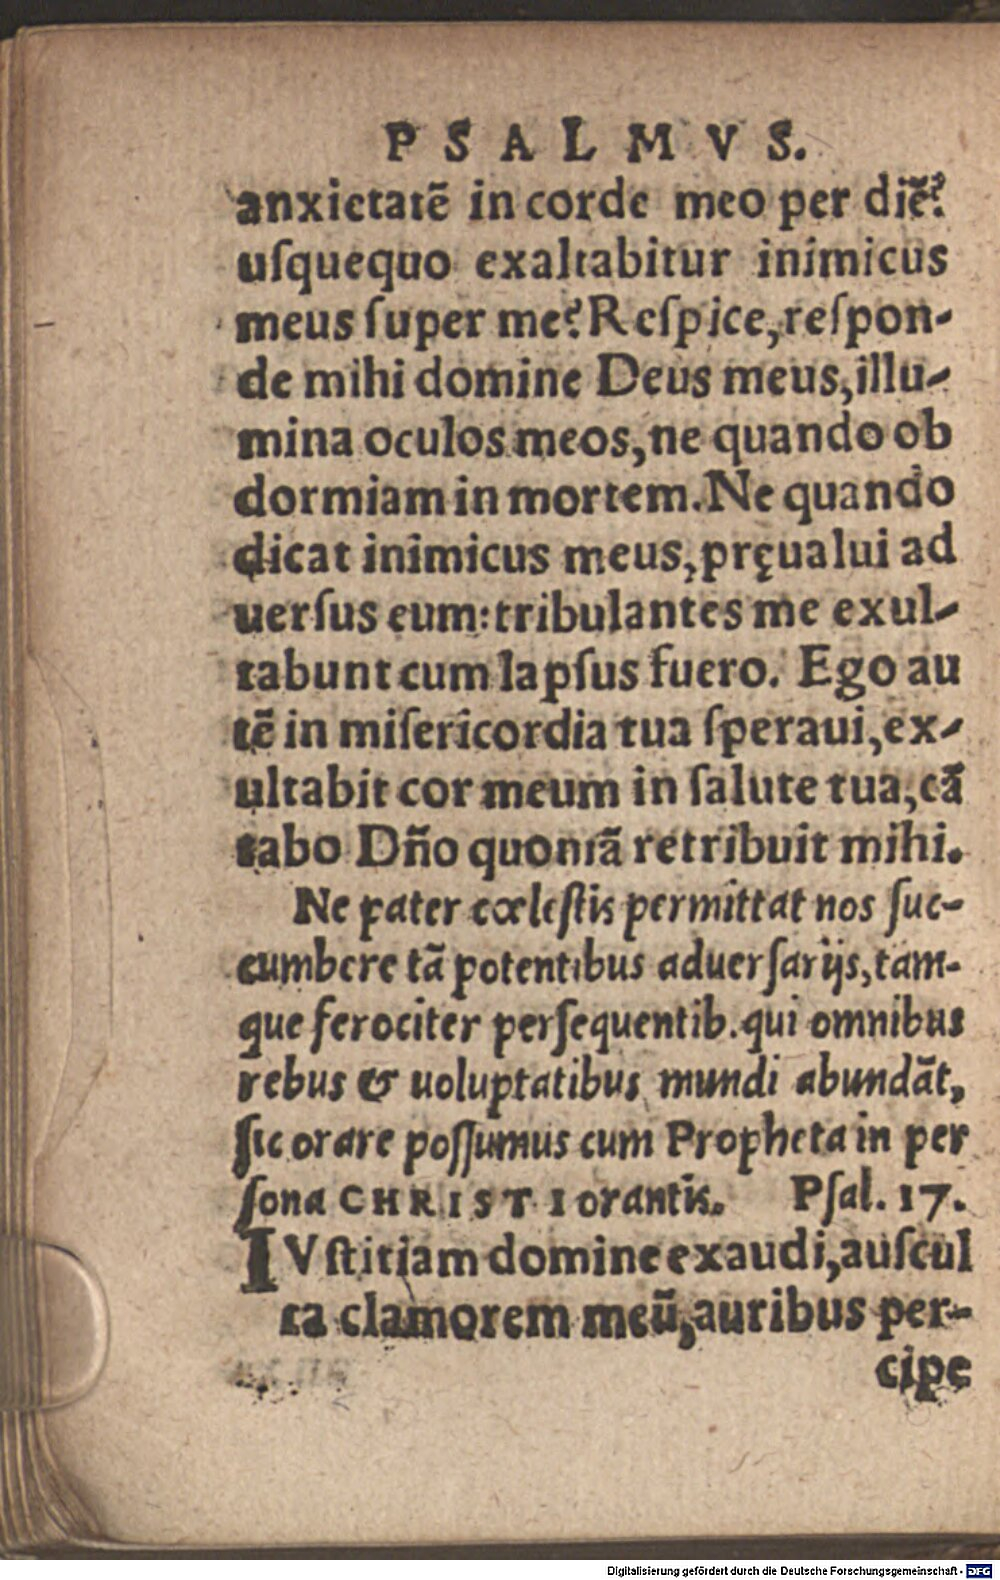 PSALMVS.
anxietatē in corde meo per diē?
uſquequo exaltabitur inimicus
meus ſuper me? Reſpice, reſpon-
de mihi domine Deus meus, illu-
mina oculos meos, ne quando ob
dormiam in mortem. Ne quando
dicat inimicus meus, pręualui ad
uerſus eum: tribulantes me exul-
tabunt cum lapſus fuero. Ego au
tē in miſericordia tua ſperaui, ex-
ultabit cor meum in ſalute tua, cā
tabo Dño quoniā retribuit mihi.
Ne pater cœleſtis permittat nos ſuc-
cumbere tā potentibus aduerſarijs, tam-
que ferociter perſequentib. qui omnibus
rebus & uoluptatibus mundi abundāt,
ſic orare poſſumus cum Propheta in per
ſona CHRISTI orantis. Pſal. 17.
IVſtitiam domine exaudi, auſcul
ta clamorem meū, auribus per-
cipe
Digitalisierung gefördert durch die Deutsche Forschungsgemeinschaft - DFG